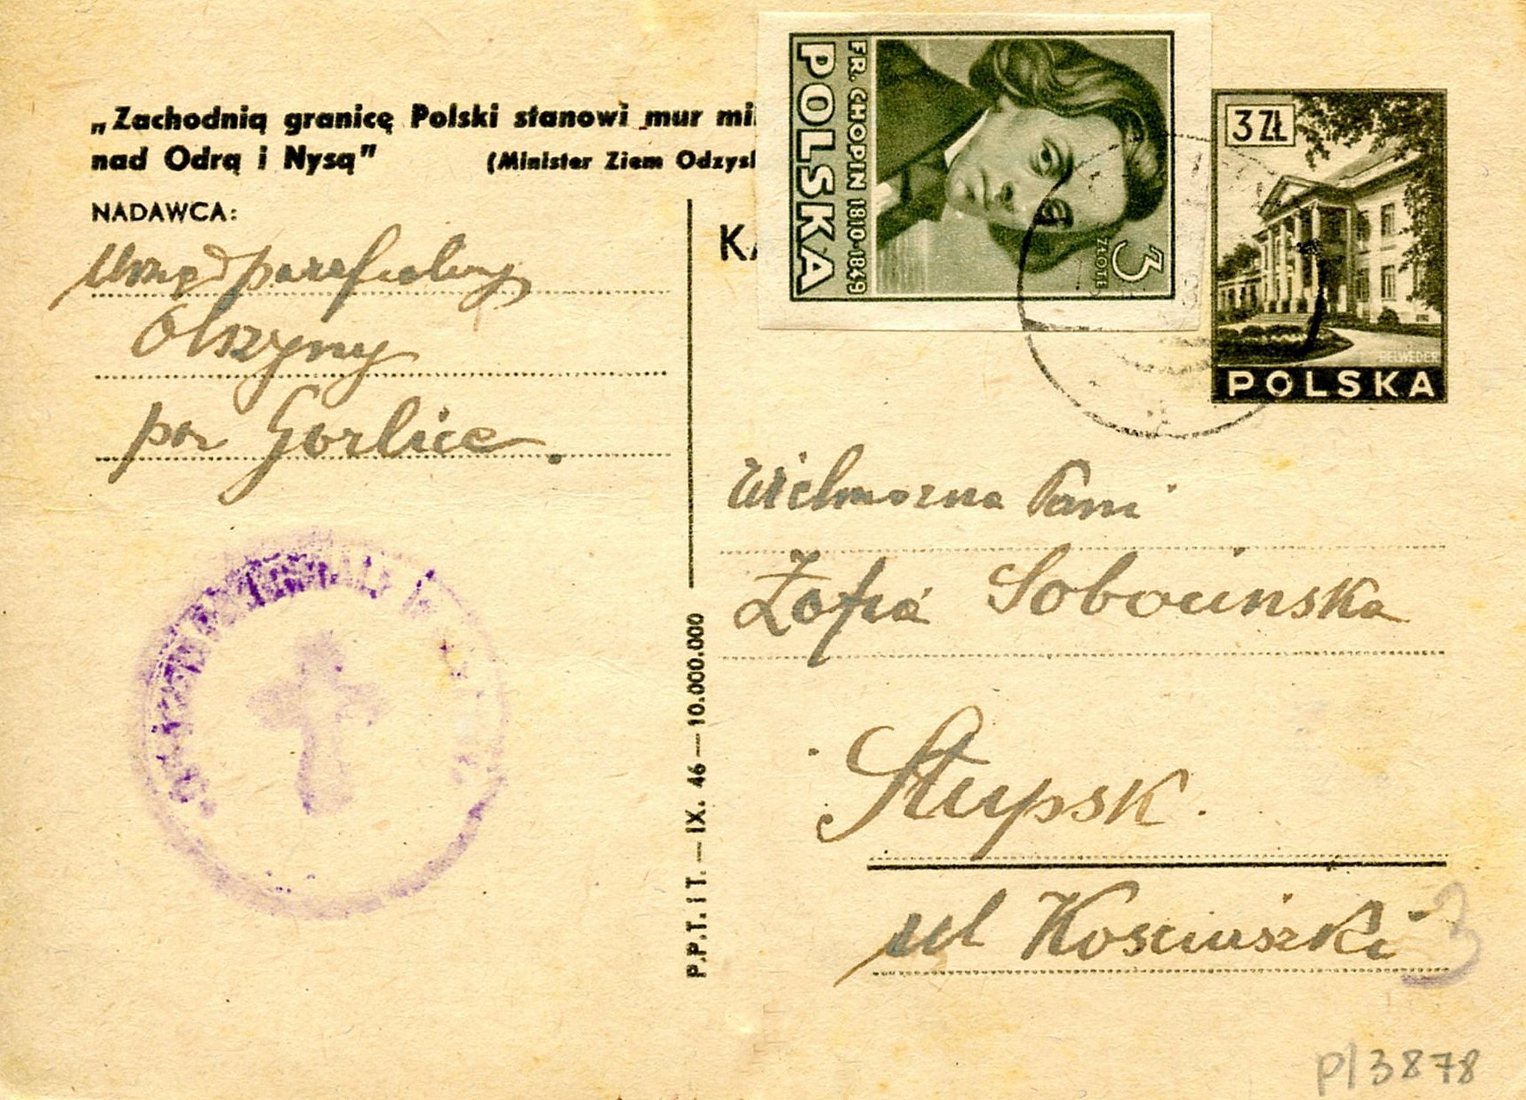 „Zachodnią granicę Polski stanowi mur mi
nad Odrą i Nysą” (Minister Ziem Odzys
NADAWCA:
Urząd parafialny
Olszyny
pow Gorlice.
KA
FR. CHOPIN 1810-1849
POLSKA
3
ZŁOTE
3 ZŁ
BELWEDER
POLSKA
Wielmożna Pani
Zofia Sobocinska
Słupsk.
ul Kosciuszki
3
P.P.T. i T. — IX. 46 — 10.000.000
pl 3878